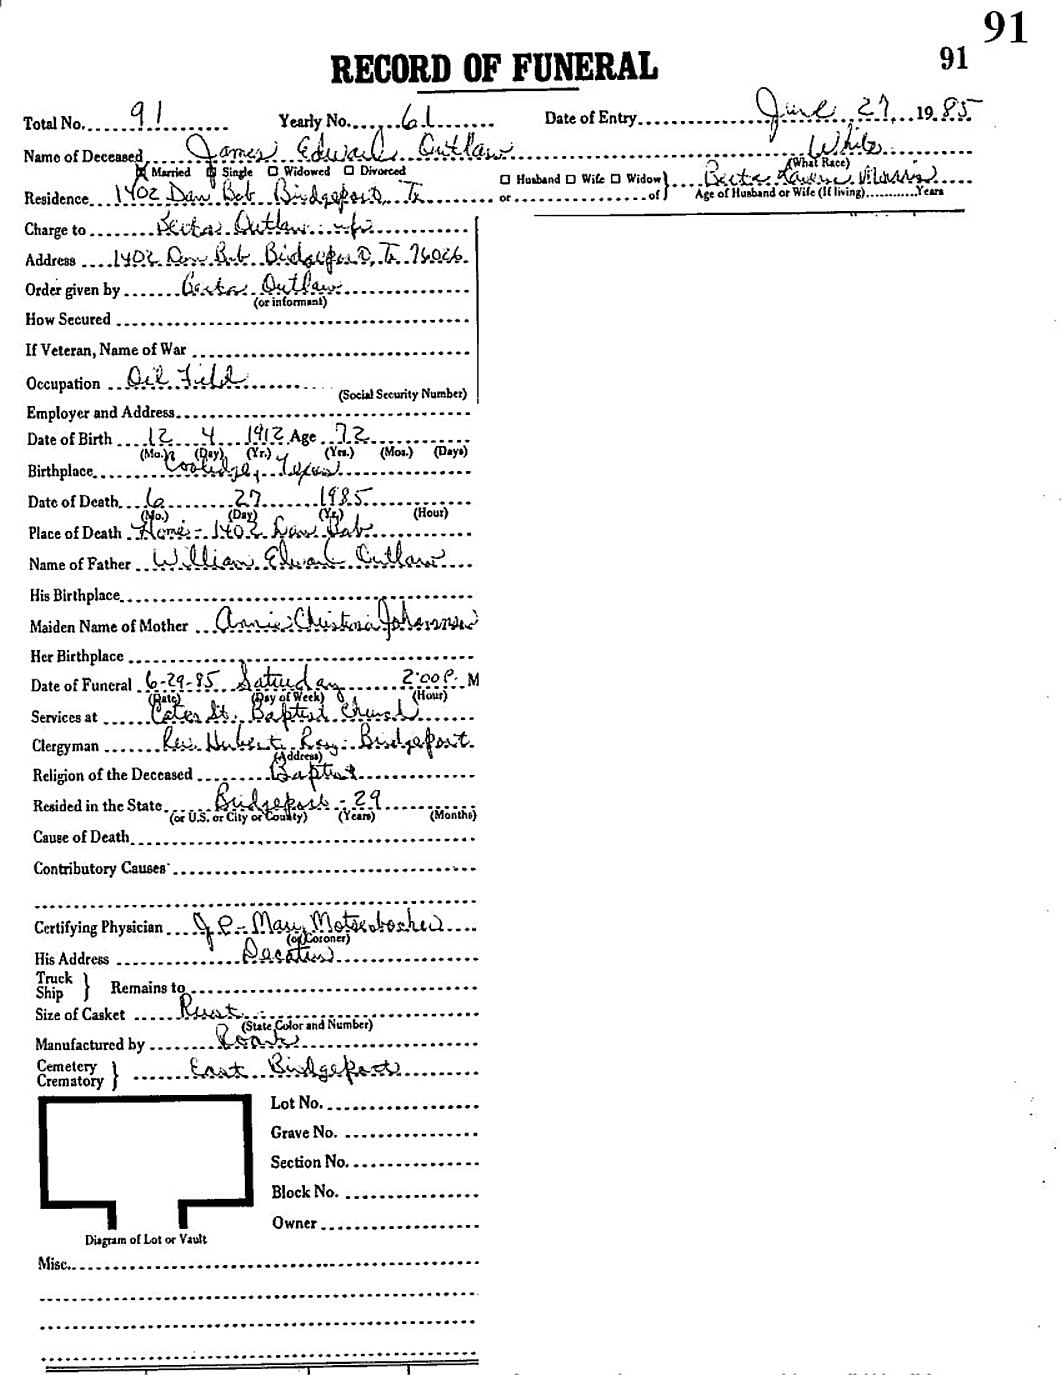 91
91
RECORD OF FUNERAL
Total No. 91 Yearly No. 61 Date of Entry June 27, 1985
Name of Deceased James Edward Outlaw White
(What Race)
Married Single Widowed Divorced
Husband Wife Widow } Berta Morris
Residence 1402 Dan Bob Bridgeport, Tx or of } Age of Husband or Wife (If living) Years
Charge to Berta Outlaw - wife
Address 1402 Dan Bob Bridgeport, Tx 76026
Order given by Berta Outlaw
(or informant)
How Secured
If Veteran, Name of War
Occupation Oil Field
(Social Security Number)
Employer and Address
Date of Birth 12 4 1912 Age 72
(Mo.) (Day) (Yr.) (Yrs.) (Mos.) (Days)
Birthplace Coolidge, Texas
Date of Death 6 27 1985
(Mo.) (Day) (Yr.) (Hour)
Place of Death Home - 1402 Dan Bob
Name of Father William Edward Outlaw
His Birthplace
Maiden Name of Mother Annie Christena
Her Birthplace
Date of Funeral 6-29-85 Saturday 2:00 P. M
(Date) (Day of Week) (Hour)
Services at Cates St. Baptist Church
Clergyman Rev. Hubert Ray - Bridgeport
(Address)
Religion of the Deceased Baptist
Resided in the State Bridgeport - 29
(or U.S. or City or County) (Years) (Months)
Cause of Death
Contributory Causes
Certifying Physician J.P. - Mary Motsenbocker
(or Coroner)
His Address Decatur
Truck
Ship } Remains to
Size of Casket Rust
(State Color and Number)
Manufactured by Roark
Cemetery
Crematory } East Bridgeport
Lot No.
Grave No.
Section No.
Block No.
Owner
Diagram of Lot or Vault
Misc.